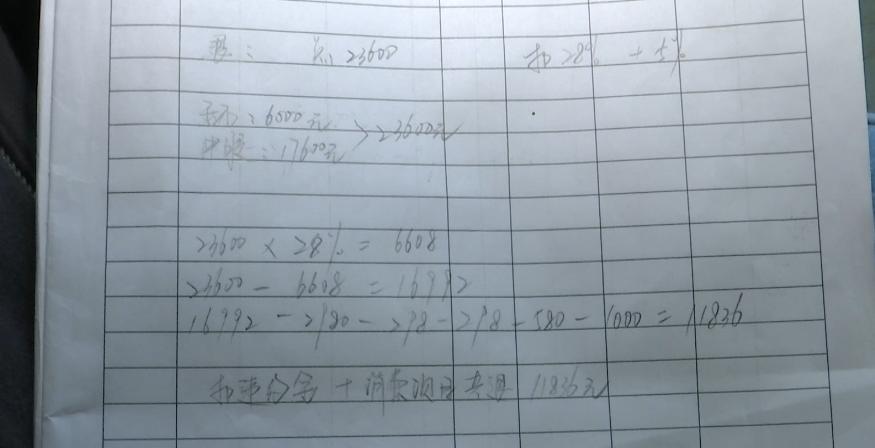 总 23600 扣 28% + 5%
6000元
17600元 > 23600元
23600 × 28% = 6608
23600 - 6608 = 16992
16992 - 2980 - 298 - 298 - 580 - 1000 = 11836
扣违约金 + 消费项目共退 11836元